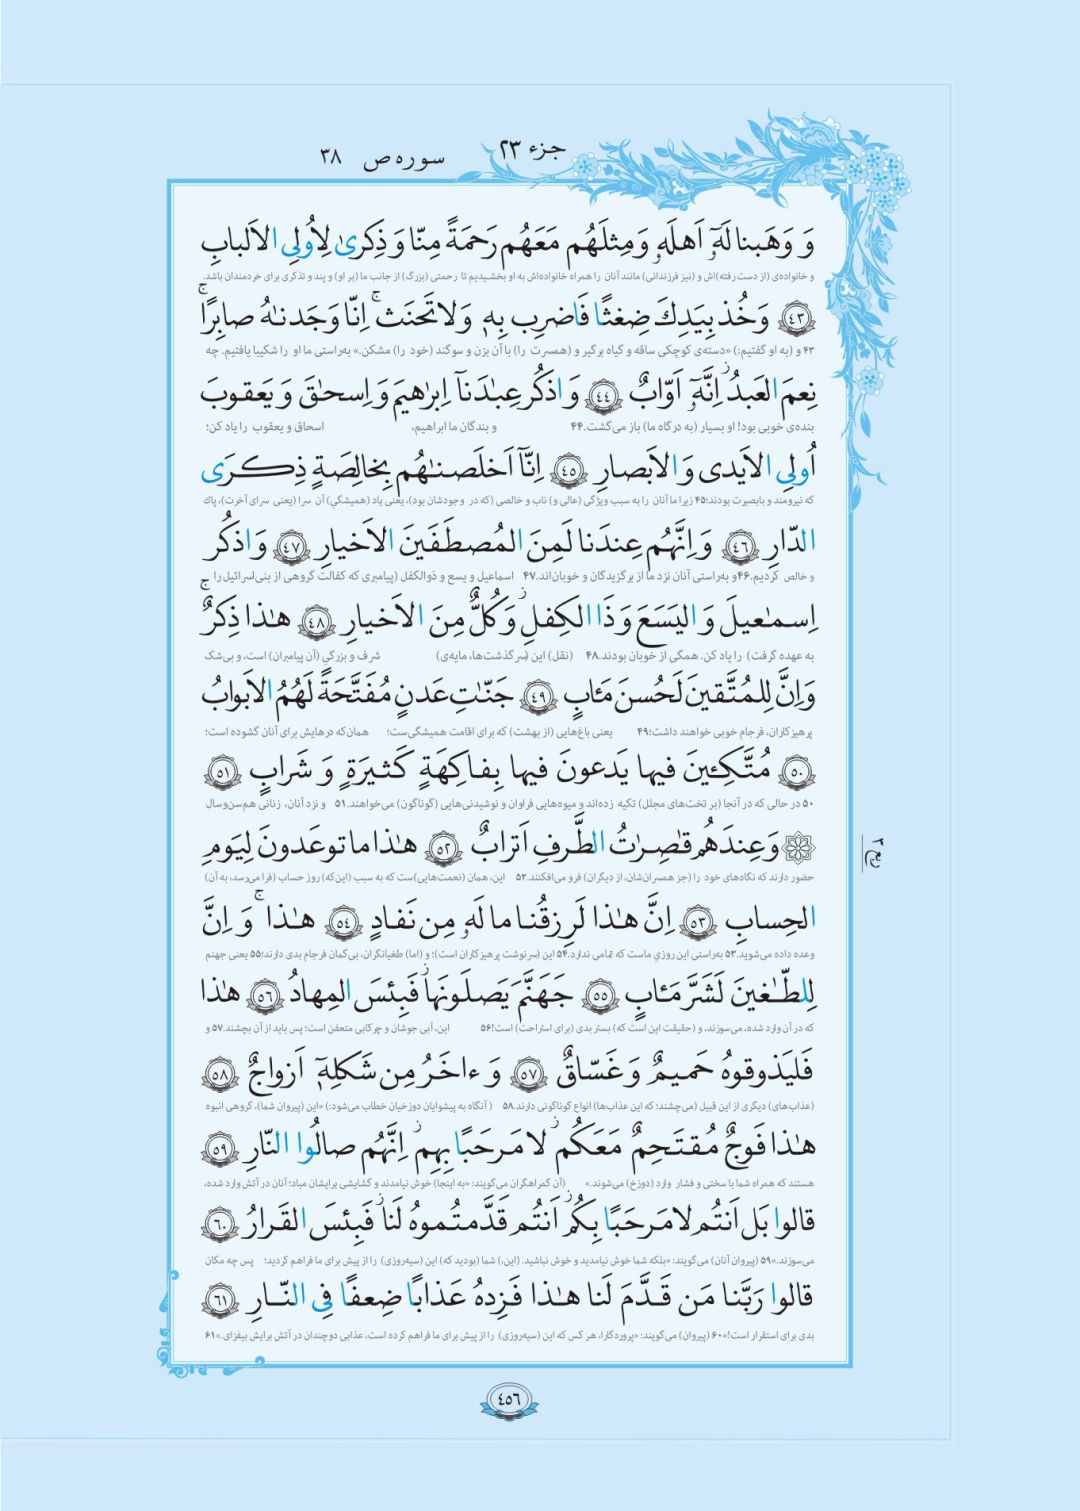 جزء ۲۳
سوره ص ۳۸
وَ وَهَبنا لَهٗٓ اَهلَهٗ وَ مِثلَهُم مَعَهُم رَحمَةً مِنّا وَ ذِكرىٰ لِاُولِى الاَلبابِ
و خانواده‌ی (از دست رفته)اش و (نیز فرزندانی) مانند آنان را همراه خانواده‌اش به او بخشیدیم تا رحمتی (بزرگ) از جانب ما (بر او) و پند و تذکری برای خردمندان باشد.
﴿٤٣﴾ وَ خُذ بِيَدِكَ ضِغثًا فَاضرِب بِهٖ وَلا تَحنَث ۚ اِنّا وَجَدنـٰهُ صابِرًا ۚ
۴۳ و (به او گفتیم:) «دسته‌ی کوچکی ساقه و گیاه برگیر و (همسرت را) با آن بزن و سوگند (خود را) مشکن.» به‌راستی ما او را شکیبا یافتیم. چه
نِعمَ العَبدُ ۖ اِنَّهٗٓ اَوّابٌ ﴿٤٤﴾ وَ اذكُر عِبـٰدَنآ اِبرٰهيمَ وَ اِسحـٰقَ وَ يَعقوبَ
بنده‌ی خوبی بود! او بسیار (به درگاه ما) باز می‌گشت.۴۴ و بندگان ما ابراهیم، اسحاق و یعقوب را یاد کن؛
اُولِى الاَيدى وَ الاَبصارِ ﴿٤٥﴾ اِنّآ اَخلَصنـٰهُم بِخالِصَةٍ ذِكرَى
که نیرومند و بابصیرت بودند؛۴۵ زیرا ما آنان را به سبب ویژگی (عالی و) ناب و خالصی (که در وجودشان بود)، یعنی یاد (همیشگی) آن سرا (یعنی سرای آخرت)، پاک
الدّارِ ﴿٤٦﴾ وَ اِنَّهُم عِندَنا لَمِنَ المُصطَفَينَ الاَخيارِ ﴿٤٧﴾ وَ اذكُر
و خالص کردیم.۴۶و به‌راستی آنان نزد ما از برگزیدگان و خوبان‌اند.۴۷ اسماعیل و یسع و ذوالکفل (پیامبری که کفالت گروهی از بنی‌اسرائیل را
اِسمـٰعيلَ وَ اليَسَعَ وَ ذَا الكِفلِ ۖ وَ كُلٌّ مِنَ الاَخيارِ ﴿٤٨﴾ هـٰذا ذِكرٌ ۚ
به عهده گرفت) را یاد کن. همگی از خوبان بودند.۴۸ (نقل) این (سرگذشت‌ها، مایه‌ی) شرف و بزرگی (آن پیامبران) است، و بی‌شک
وَ اِنَّ لِلمُتَّقينَ لَحُسنَ مَـٔابٍ ﴿٤٩﴾ جَنّـٰتِ عَدنٍ مُفَتَّحَةً لَهُمُ الاَبوابُ
پرهیزکاران، فرجام خوبی خواهند داشت؛۴۹ یعنی باغ‌هایی (از بهشت) که برای اقامت همیشگی‌ست؛ همان‌که درهایش برای آنان گشوده است؛
﴿٥٠﴾ مُتَّكِـٔينَ فيها يَدعونَ فيها بِفاكِهَةٍ كَثيرَةٍ وَ شَرابٍ ﴿٥١﴾
۵۰ در حالی که در آنجا (بر تخت‌های مجلل) تکیه زده‌اند و میوه‌هایی فراوان و نوشیدنی‌هایی (گوناگون) می‌خواهند.۵۱ و نزد آنان، زنانی هم‌سن‌وسال
وَ عِندَهُم قاصِراتُ الطَّرفِ اَترابٌ ﴿٥٢﴾ هـٰذا ما توعَدونَ لِيَومِ
ربع ۲
حضور دارند که نگاه‌های خود را (جز همسران‌شان، از دیگران) فرو می‌افکنند.۵۲ این، همان (نعمت‌هایی)ست که به سبب (این‌که) روز حساب (فرا می‌رسد، به آن)
الحِسابِ ﴿٥٣﴾ اِنَّ هـٰذا لَرِزقُنا ما لَهٗ مِن نَفادٍ ﴿٥٤﴾ هـٰذا ۚ وَ اِنَّ
وعده داده می‌شوید.۵۳ به‌راستی این روزیِ ماست که تمامی ندارد.۵۴ این (سرنوشت پرهیزکاران است)؛ و (اما) طغیانگران، بی‌گمان فرجام بدی دارند؛۵۵ یعنی جهنم
لِلطّـٰغينَ لَشَرَّ مَـٔابٍ ﴿٥٥﴾ جَهَنَّمَ يَصلَونَها ۖ فَبِئسَ المِهادُ ﴿٥٦﴾ هـٰذا
که در آن وارد شده، می‌سوزند، و (حقیقت این است که) بستر بدی (برای استراحت) است!۵۶ این، آبی جوشان و چرکابی متعفن است؛ پس باید از آن بچشند.۵۷ و
فَليَذوقوهُ حَميمٌ وَ غَسّاقٌ ﴿٥٧﴾ وَ ءاخَرُ مِن شَكلِهٖٓ اَزواجٌ ﴿٥٨﴾
(عذاب‌های) دیگری از این قبیل (می‌چشند؛ که این عذاب‌ها) انواع گوناگونی دارند.۵۸ (آنگاه به پیشوایان دوزخیان خطاب می‌شود:) «این (پیروان شما)، گروهی انبوه
هـٰذا فَوجٌ مُقتَحِمٌ مَعَكُم ۖ لا مَرحَبًا بِهِم ۖ اِنَّهُم صالُوا النّارِ ﴿٥٩﴾
هستند که همراه شما با سختی و فشار وارد (دوزخ) می‌شوند.» (آن گمراهگران می‌گویند: «به اینجا) خوش نیامدند و گشایشی برایشان مباد؛ آنان در آتش وارد شده،
قالوا بَل اَنتُم لا مَرحَبًا بِكُم ۖ اَنتُم قَدَّمتُموهُ لَنا ۖ فَبِئسَ القَرارُ ﴿٦٠﴾
می‌سوزند.»۵۹ (پیروان آنان) می‌گویند: «بلکه شما خوش نیامدید و خوش نباشید. (این،) شما (بودید که) این (سیه‌روزی) را از پیش برای ما فراهم کردید؛ پس چه مکان
قالوا رَبَّنا مَن قَدَّمَ لَنا هـٰذا فَزِدهُ عَذابًا ضِعفًا فِى النّارِ ﴿٦١﴾
بدی برای استقرار است!»۶۰ (پیروان) می‌گویند: «پروردگارا، هر کس که این (سیه‌روزی) را از پیش برای ما فراهم کرده است، عذابی دوچندان در آتش برایش بیفزای.»۶۱
٤٥٦